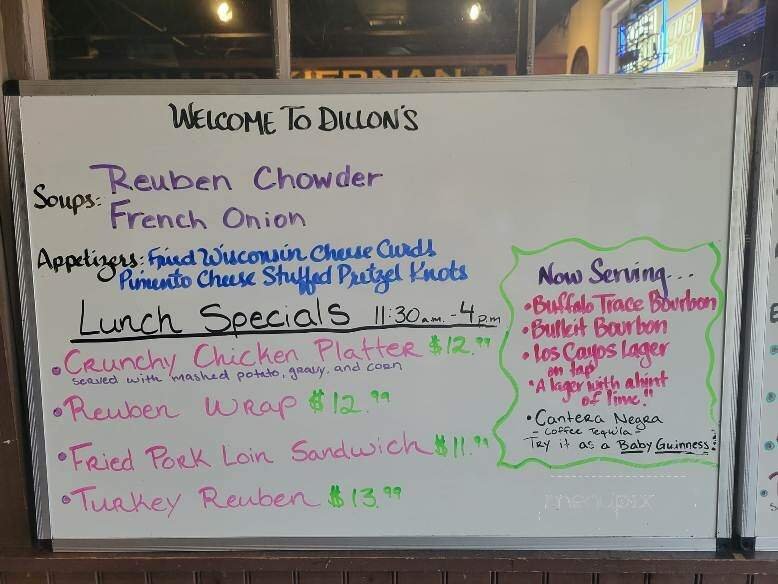 KIERNAN
WELCOME TO DILLON'S
Soups: Reuben Chowder
French Onion
Appetizers: Fried Wisconsin Cheese Curds
Pimento Cheese Stuffed Pretzel Knots
Lunch Specials 11:30 a.m. - 4 p.m
• Crunchy Chicken Platter $12.99
served with mashed potato, gravy, and corn
• Reuben Wrap $12.99
• Fried Pork Loin Sandwich $11.99
• Turkey Reuben $13.99
Now Serving...
• Buffalo Trace Bourbon
• Bulleit Bourbon
• Los Cayos Lager
on tap
"A lager with a hint
of lime!!"
• Cantera Negra
- Coffee Tequila -
Try it as a Baby Guinness!
menupix